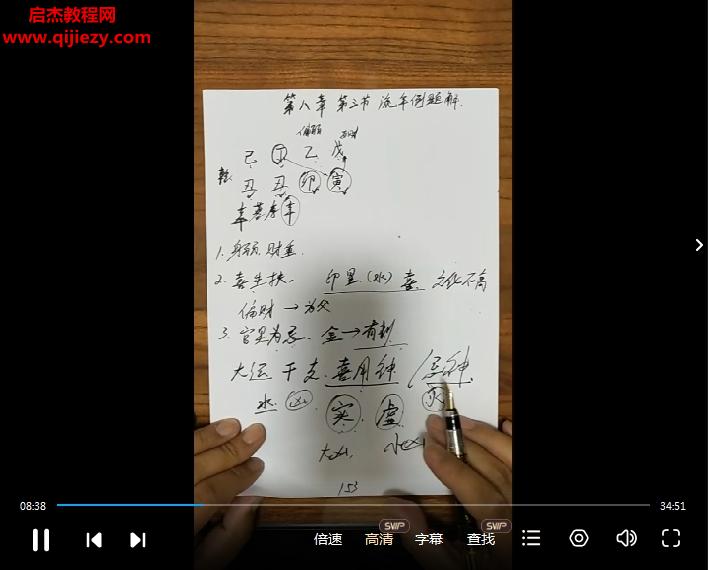 启杰教程网
www.qijiezy.com
第八章 第三节 流年例题解
己 丁 乙 戊
乾: 丑 丑 卯 寅
1. 身弱 财重
2. 喜生扶 印星(水)喜 文化不高
偏财→为父
3. 官星为忌 金→有制
大运 干支 喜用神 忌神
水 凶 实 虚 灾
大凶 小凶
153
08:38
34:51
SVIP
SVIP
倍速 高清 字幕 查找